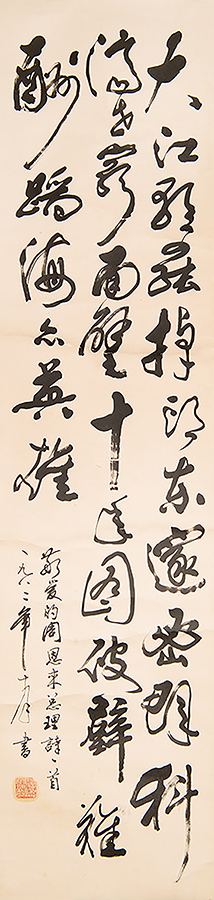 大江歌罷掉頭東邃密群科
濟世窮面壁十年圖破壁難
酬蹈海亦英雄
敬爱的周恩来总理一首
一九八二年十月書